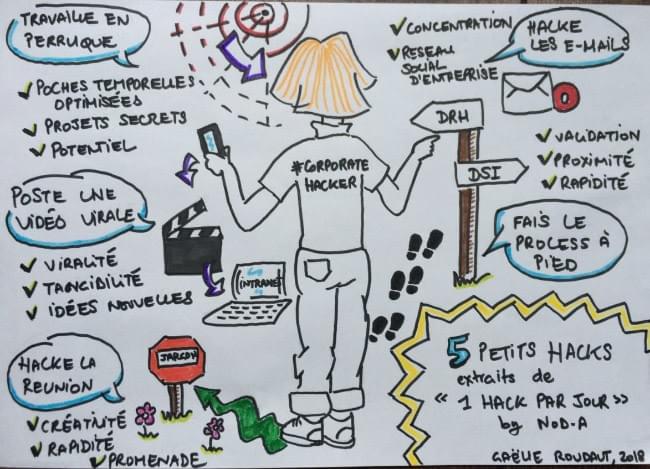 TRAVAILLE EN
PERRUQUE
POCHES TEMPORELLES
OPTIMISÉES
PROJETS SECRETS
POTENTIEL
CONCENTRATION
RESEAU
SOCIAL
D'ENTREPRISE
HACKE
LES E-MAILS
DRH
DSI
VALIDATION
PROXIMITÉ
RAPIDITÉ
#CORPORATE
HACKER
POSTE UNE
VIDÉO VIRALE
VIRALITÉ
TANGIBILITÉ
IDÉES NOUVELLES
INTRANET
FAIS LE
PROCESS À
PIED
HACKE LA
REUNION
JARGON
CRÉATIVITÉ
RAPIDITÉ
PROMENADE
5 PETITS HACKS
extraits de
« 1 HACK PAR JOUR »
by NOD-A
GAËLLE ROUDAUT, 2018